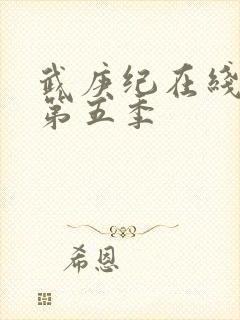 武庚纪在线
第五季
希恩